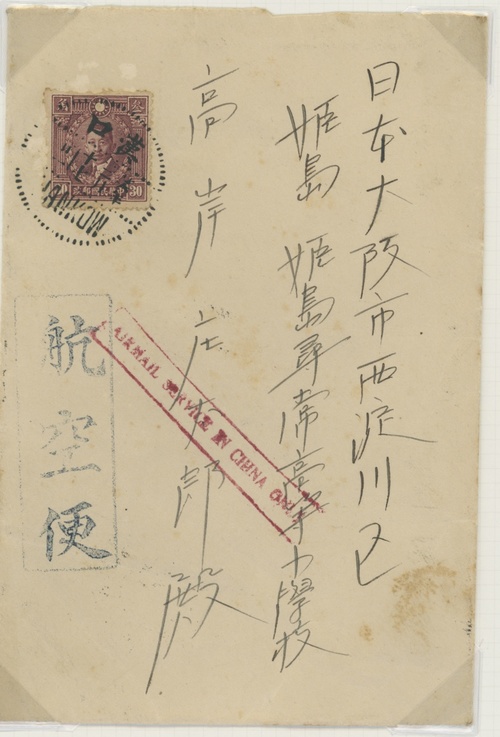 日本大阪市西淀川区
姫島 姫島尋常高等小學校
高岸庄太郎殿
航空便
AIRMAIL SERVICE IN CHINA ONLY
漢口
30
30